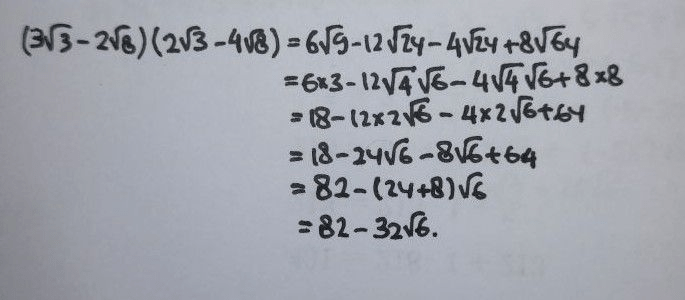 (3√3 - 2√8)(2√3 - 4√8) = 6√9 - 12√24 - 4√24 + 8√64
= 6×3 - 12√4 √6 - 4√4 √6 + 8×8
= 18 - 12×2√6 - 4×2√6 + 64
= 18 - 24√6 - 8√6 + 64
= 82 - (24+8)√6
= 82 - 32√6.